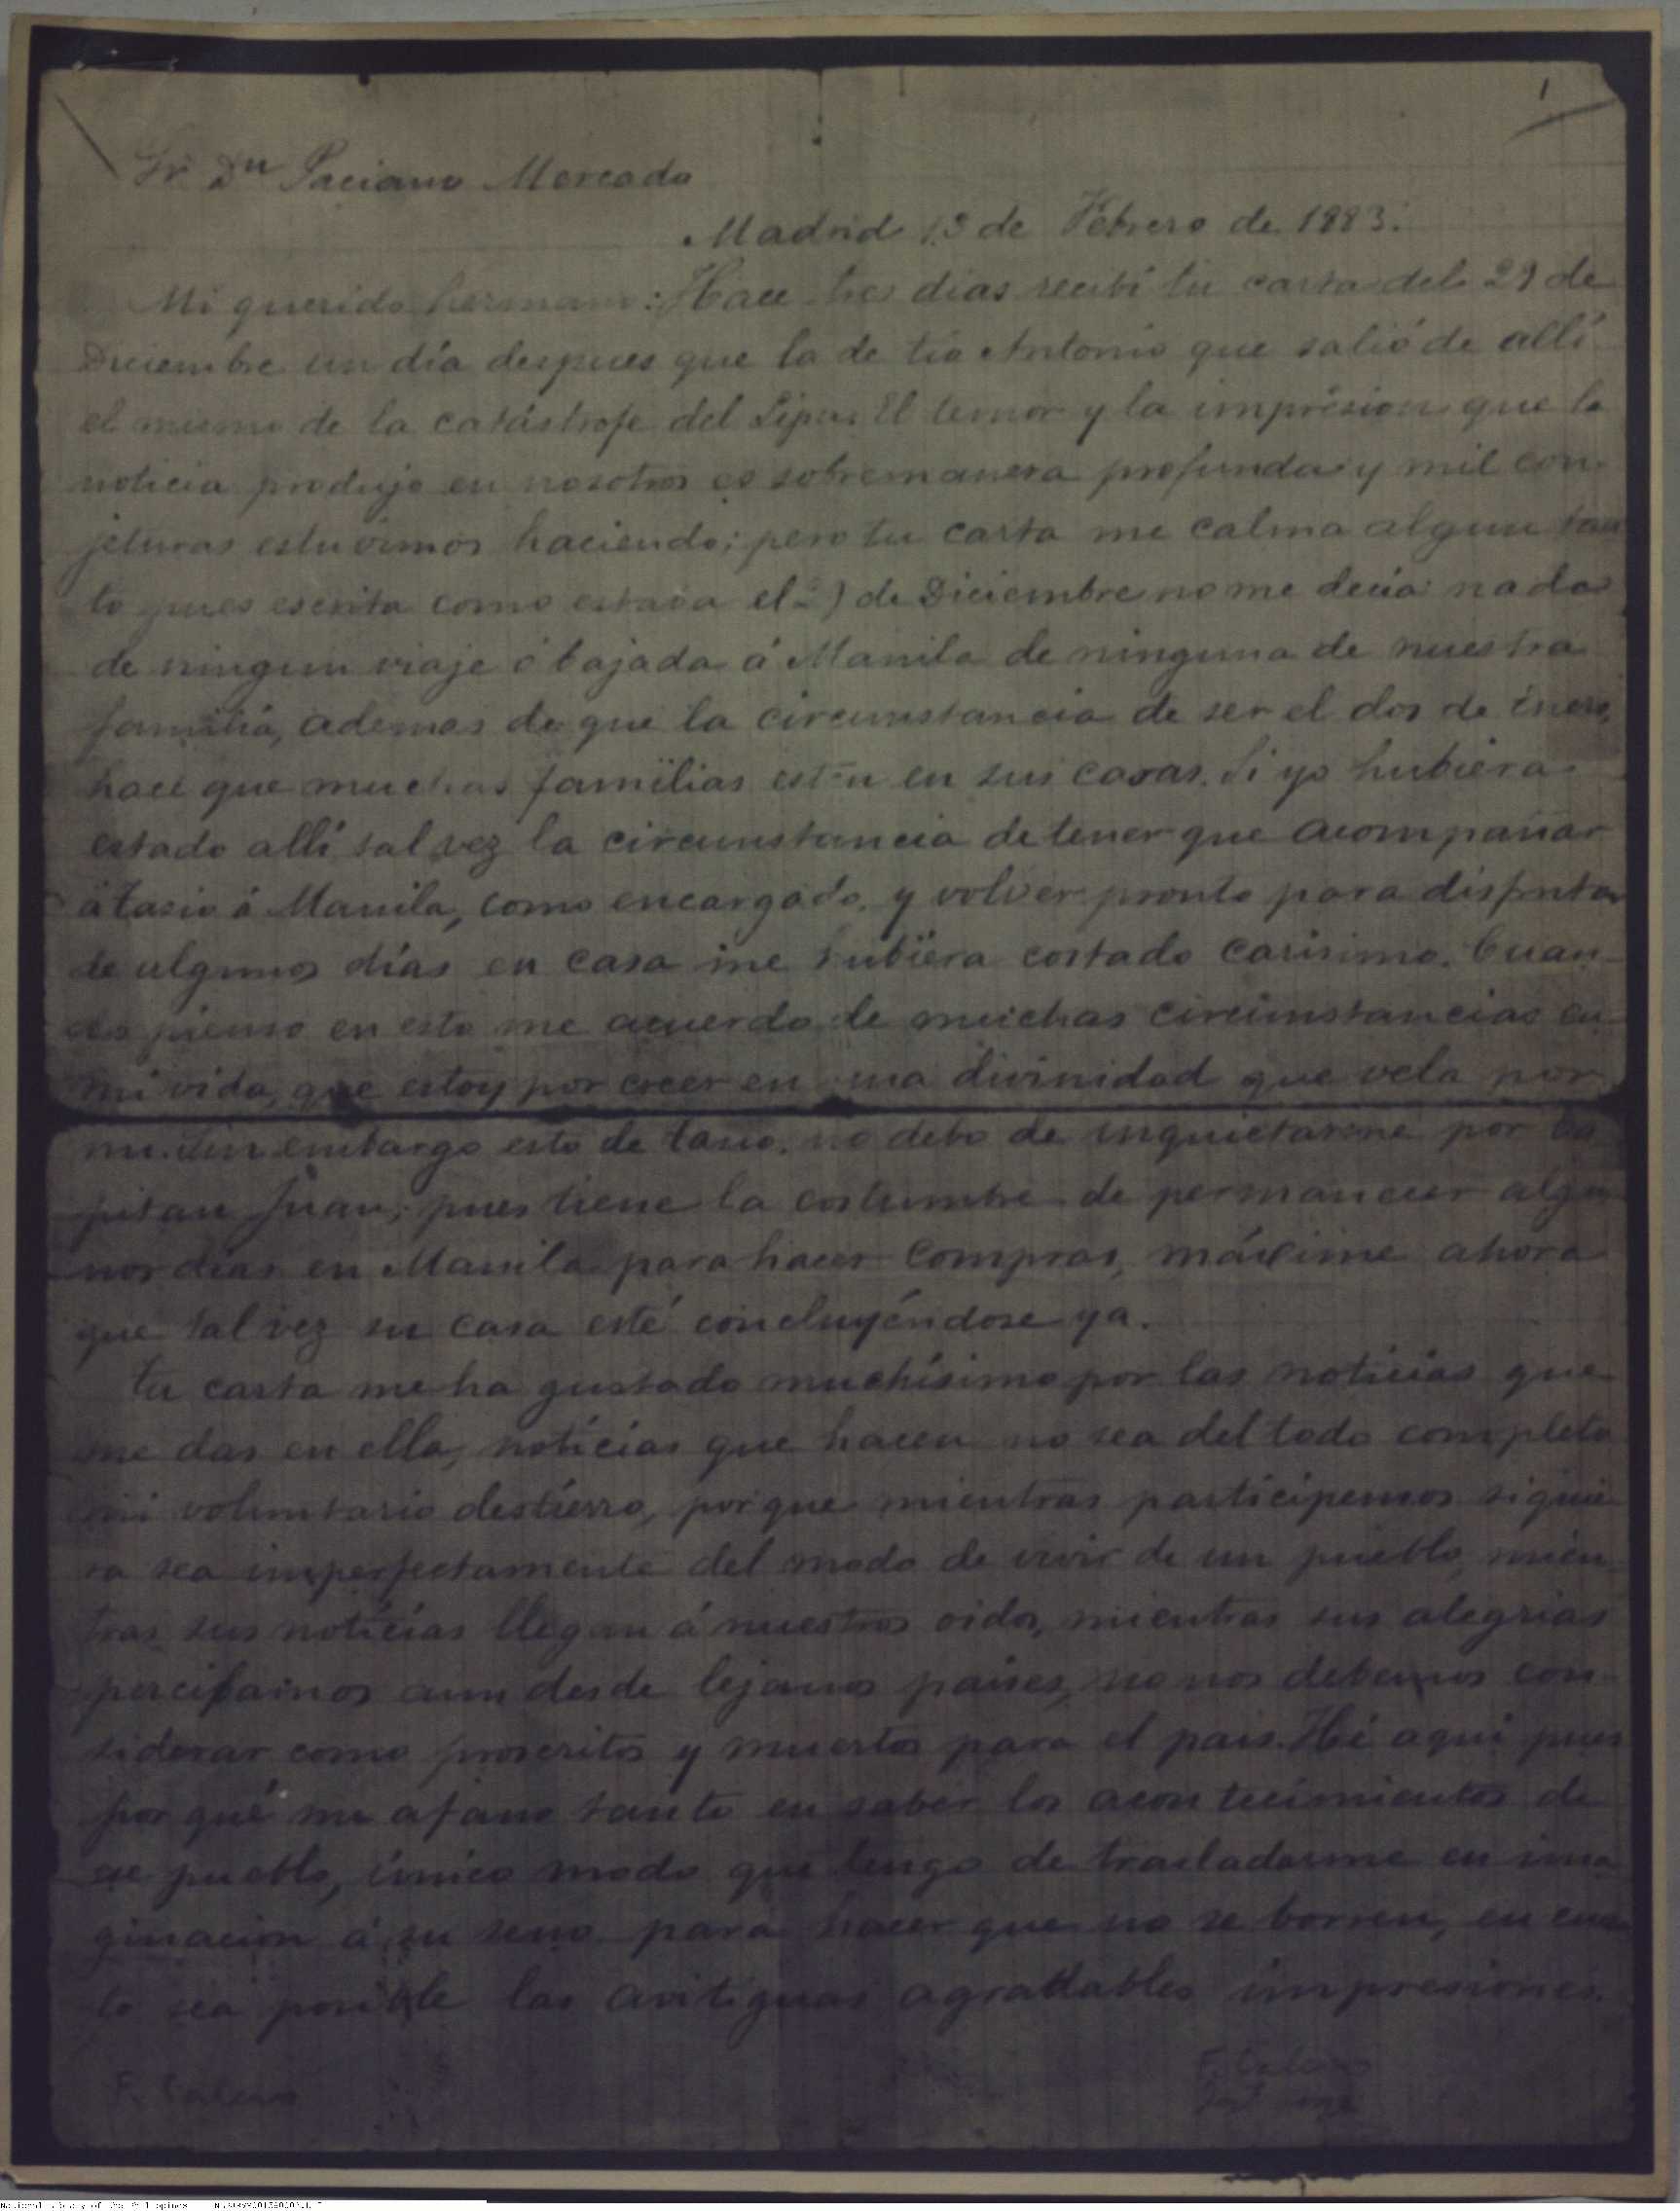 1
Sr. Dn Paciano Mercado
Madrid 13 de Febrero de 1883.
Mi querido hermano: Hace tres dias recibí tu carta del 29 de
Diciembre un día despues que la de tío Antonio que salió de allí
el mismo de la catástrofe del Lipa. El temor y la impresion que la
noticia produjo en nosotros es sobremanera profunda y mil con-
jeturas estuvimos haciendo; pero tu carta me calma algun tan
to pues escrita como estaba el de Diciembre no me decía nada
de ningun viaje ó bajada á Manila de ninguna de nuestra
familia, ademas de que la circunstancia de ser el dos de Enero,
hace que muchas famïlias estén en sus casas. Si yo hubiera
estado allí tal vez la circunstancia de tener que acompañar
á Tasio á Manila, como encargado, y volver pronto para disfrutar
de algunos días en casa me hubïera costado carísimo. Cuan-
do pienso en esto me acuerdo de muichas circunstancias en
mi vida, que estoy por creer en una divinidad que vela por
mi. Sin embargo esto de no debo de inquietarme por Ca
pitan Juan; pues tiene la costumbre de permanecer algu
nos dias en Manila para hacer compras, máxime ahora
que tal vez su casa esté concluyéndose ya.
Tu carta me ha gustado muchísimo por las noticias que
me das en ella, noticias que hacen no sea del todo completo
mi voluntario destierro, porque mientras participemos siquie
ra sea imperfectamente del modo de vivir de un pueblo, mien
tras sus noticias llegan á nuestros oidos, mientras sus alegrias
percibamos aun desde lejanos paises, no nos debemos con-
siderar como proscritos y muertos para el pais. Hé aqui pues
por qué me afano tanto en saber los acontecimientos de
ese pueblo, único modo que tengo de trasladarme en ima
ginacion á su seno para hacer que no se borren, en cuan
to sea posible las antiguas agradables impresiones.
F. Calero
F. Calero
National Library of the Philippines